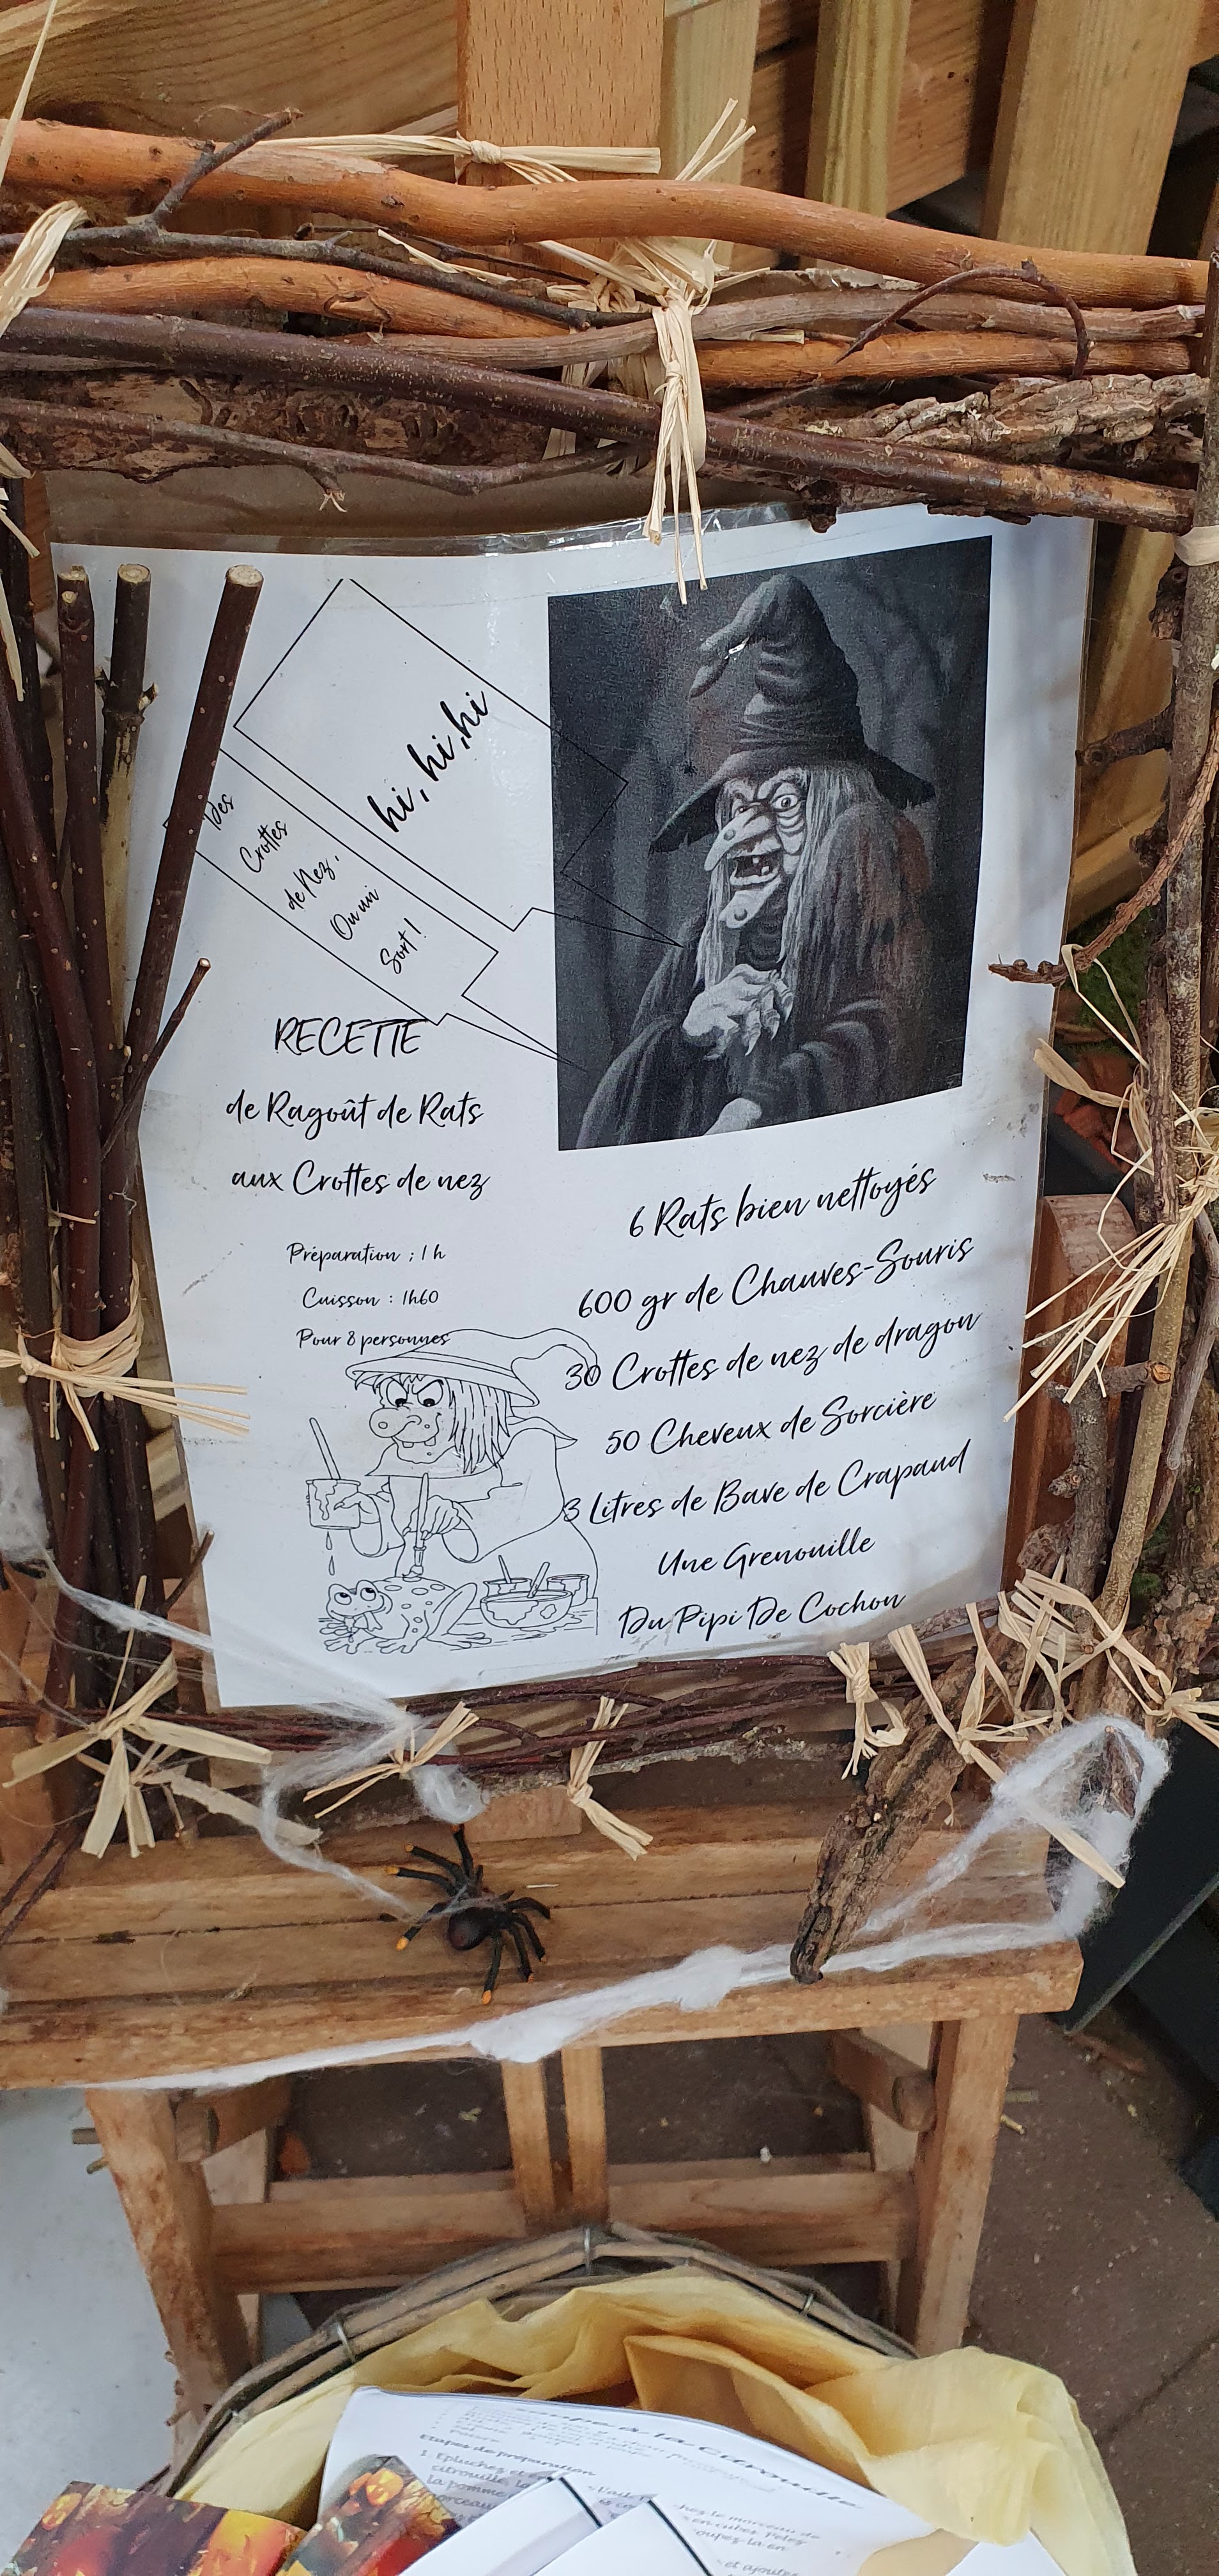 hi, hi, hi
Des
Crottes
de Nez,
Ou un
Sort !
RECETTE
de Ragoût de Rats
aux Crottes de nez
Préparation : 1 h
Cuisson : 1h60
Pour 8 personnes
6 Rats bien nettoyés
600 gr de Chauves-Souris
30 Crottes de nez de dragon
50 Cheveux de Sorcière
3 Litres de Bave de Crapaud
Une Grenouille
Du Pipi De Cochon
à la Citrouille
Etapes de préparation
1. Epluchez et
citrouille, la
la pomme
le morceau de
en cubes. Pelez
coupez-la en
et ajoutez